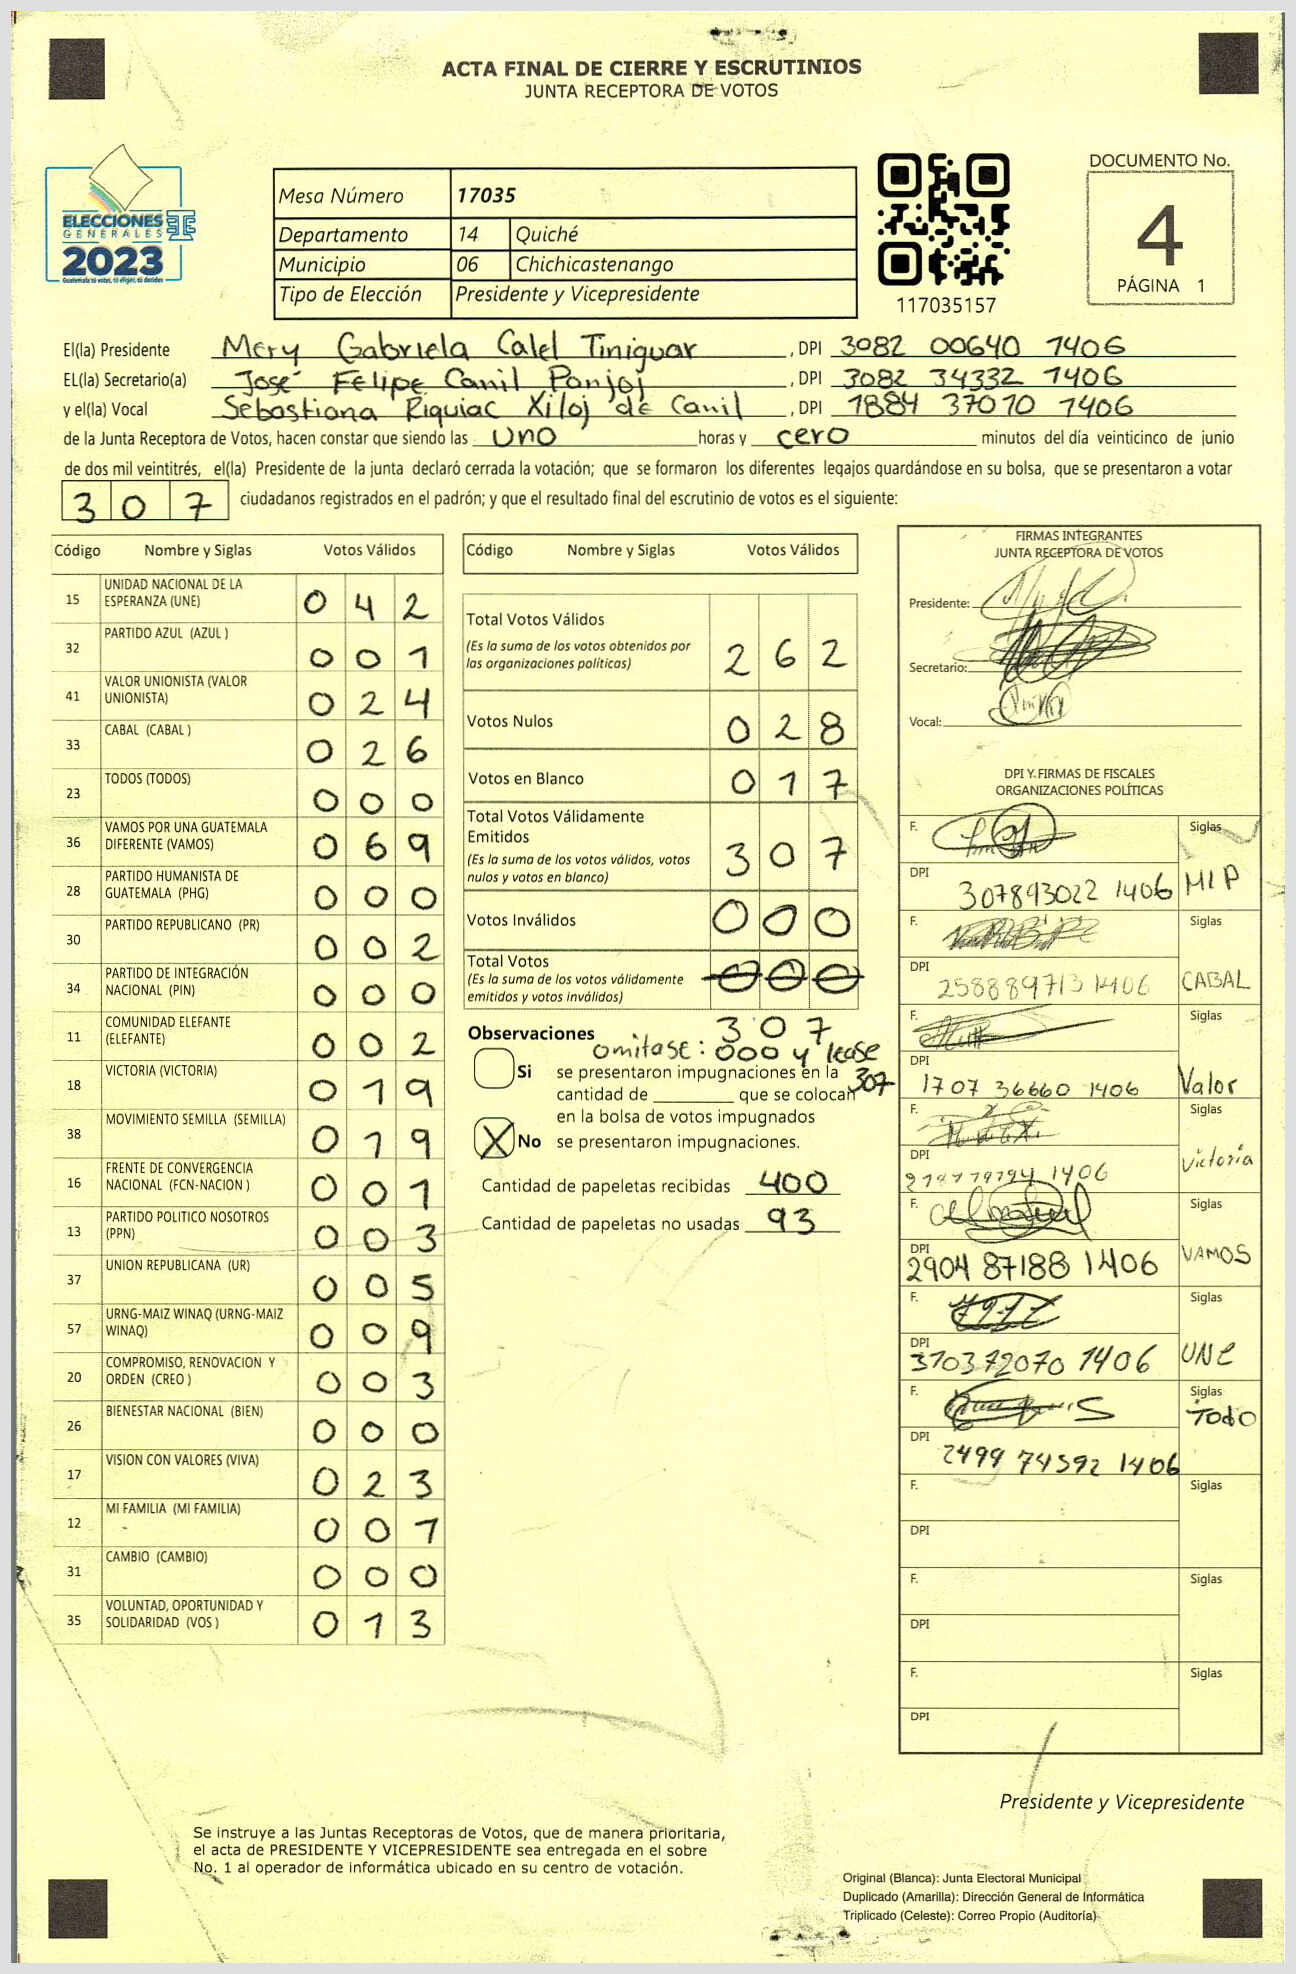 ACTA FINAL DE CIERRE Y ESCRUTINIOS
JUNTA RECEPTORA DE VOTOS
ELECCIONES
GENERALES
2023
Guatemala tú votas, tú eliges, tú decides
Mesa Número 17035
Departamento 14 Quiché
Municipio 06 Chichicastenango
Tipo de Elección Presidente y Vicepresidente
117035157
DOCUMENTO No.
4
PÁGINA 1
El(la) Presidente Mery Gabriela Calel Tiniguar, DPI 3082 00640 1406
EL(la) Secretario(a) José Felipe Canil Panjoj, DPI 3082 34332 1406
y el(la) Vocal Sebastiana Riquiac Xiloj de Canil, DPI 1884 37070 1406
de la Junta Receptora de Votos, hacen constar que siendo las uno horas y cero minutos del día veinticinco de junio
de dos mil veintitrés, el(la) Presidente de la junta declaró cerrada la votación; que se formaron los diferentes legajos guardándose en su bolsa, que se presentaron a votar
307 ciudadanos registrados en el padrón; y que el resultado final del escrutinio de votos es el siguiente:
Código Nombre y Siglas Votos Válidos
15 UNIDAD NACIONAL DE LA ESPERANZA (UNE) 042
32 PARTIDO AZUL (AZUL ) 001
41 VALOR UNIONISTA (VALOR UNIONISTA) 024
33 CABAL (CABAL ) 026
23 TODOS (TODOS) 000
36 VAMOS POR UNA GUATEMALA DIFERENTE (VAMOS) 069
28 PARTIDO HUMANISTA DE GUATEMALA (PHG) 000
30 PARTIDO REPUBLICANO (PR) 002
34 PARTIDO DE INTEGRACIÓN NACIONAL (PIN) 000
11 COMUNIDAD ELEFANTE (ELEFANTE) 002
18 VICTORIA (VICTORIA) 019
38 MOVIMIENTO SEMILLA (SEMILLA) 019
16 FRENTE DE CONVERGENCIA NACIONAL (FCN-NACION ) 001
13 PARTIDO POLITICO NOSOTROS (PPN) 003
37 UNION REPUBLICANA (UR) 005
57 URNG-MAIZ WINAQ (URNG-MAIZ WINAQ) 009
20 COMPROMISO, RENOVACION Y ORDEN (CREO ) 003
26 BIENESTAR NACIONAL (BIEN) 000
17 VISION CON VALORES (VIVA) 023
12 MI FAMILIA (MI FAMILIA) 001
31 CAMBIO (CAMBIO) 000
35 VOLUNTAD, OPORTUNIDAD Y SOLIDARIDAD (VOS ) 013
Código Nombre y Siglas Votos Válidos
Total Votos Válidos 262
(Es la suma de los votos obtenidos por
las organizaciones políticas)
Votos Nulos 028
Votos en Blanco 017
Total Votos Válidamente
Emitidos 307
(Es la suma de los votos válidos, votos
nulos y votos en blanco)
Votos Inválidos 000
Total Votos 000
(Es la suma de los votos válidamente
emitidos y votos inválidos)
307
Observaciones
omitase: 000 y lease 307
Si se presentaron impugnaciones en la
cantidad de ________ que se colocan
en la bolsa de votos impugnados
X No se presentaron impugnaciones.
Cantidad de papeletas recibidas 400
Cantidad de papeletas no usadas 93
FIRMAS INTEGRANTES
JUNTA RECEPTORA DE VOTOS
Presidente:
Secretario:
Vocal:
DPI Y FIRMAS DE FISCALES
ORGANIZACIONES POLÍTICAS
F. Siglas
DPI 307893022 1406 MLP
F. Siglas
DPI 258889713 1406 CABAL
F. Siglas
DPI 1707 36660 1406 Valor
F. Siglas
DPI 1406 Victoria
F. Siglas
DPI 2904 87188 1406 VAMOS
F. Siglas
DPI 310372070 1406 UNE
F. Siglas
DPI 2499 74592 1406 Todo
F. Siglas
DPI
F. Siglas
DPI
F. Siglas
DPI
Presidente y Vicepresidente
Se instruye a las Juntas Receptoras de Votos, que de manera prioritaria,
el acta de PRESIDENTE Y VICEPRESIDENTE sea entregada en el sobre
No. 1 al operador de informática ubicado en su centro de votación.
Original (Blanca): Junta Electoral Municipal
Duplicado (Amarilla): Dirección General de Informática
Triplicado (Celeste): Correo Propio (Auditoría)